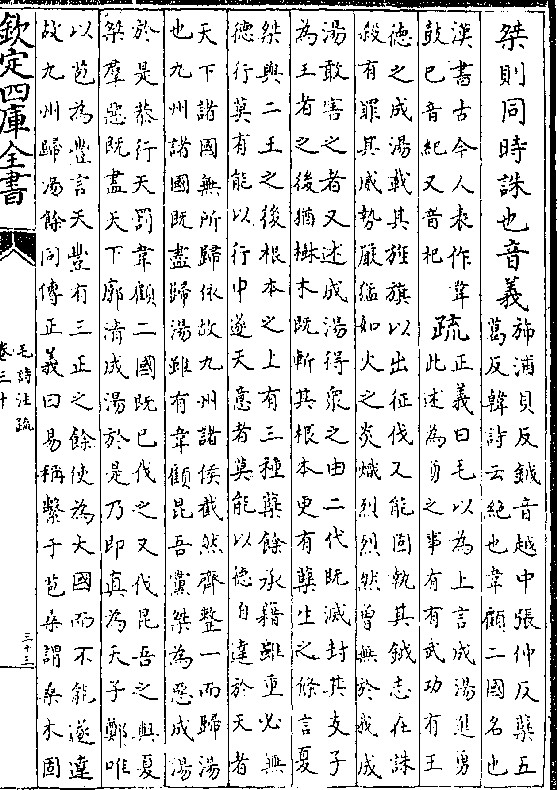 桀則同時誅也音義
斾浦貝反鉞音越中張仲反蘖五
葛反韓詩云絕也韋顧二國名也
漢書古今人表作韋
鼓已音紀又音杞
疏
正義曰毛以為上言成湯進勇
此述為勇之事有有武功有王
德之成湯載其旌旗以出征伐又能固執其鉞志在誅
殺有罪其威勢嚴猛如火之炎熾烈烈然曾無於我成
湯敢害之者又述成湯得衆之由二代既滅封其支子
為王者之後猶樹木既斬其根本更有蘖生之條言夏
桀與二王之後根本之上有三種蘖餘承藉雖重必無
德行莫有能以行申遂天意者莫能以德自達於天者
天下諸國無所歸依故九州諸侯截然齊整一而歸湯
也九州諸國既盡歸湯雖有韋顧昆吾黨桀為惡成湯
於是恭行天罰韋顧二國既已伐之又伐昆吾之與夏
桀羣惡既盡天下廓清成湯於是乃即真為天子鄭唯
以苞為豐言天豐有三正之餘使為大國而不能遂達
故九州歸湯餘同傳正義曰易稱繫于苞桑謂桑木固
欽定四庫全書
毛詩注疏
卷三十
三十三